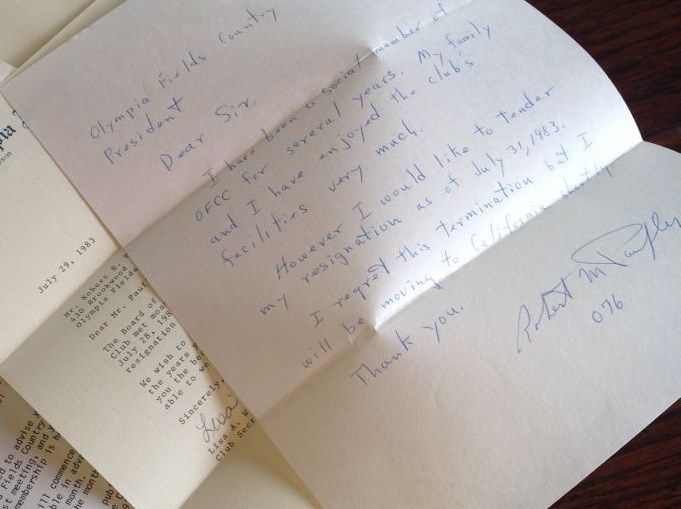 Olympia Fields Country
President
Dear Sir,
I have been a social member of
OFCC for several years. My family
and I have enjoyed the clubs
facilities very much.
However I would like to tender
my resignation as of July 31, 1983.
I regret this termination but I
will be moving to California shortly
Thank you.
Robert M
076
July 29, 1983
Mr. Robert
430 Brookwood
Olympia Fields
Dear Mr.
The Board of
Club met
July 28, 198
resignation
We wish to
the years
you the be
able to we
Sincerely,
Lisa
Lisa A. W
Club Sec
ed to advise
a Fields Country
st meeting, and
membership is
ll commence
ble in adv
month.
the mont